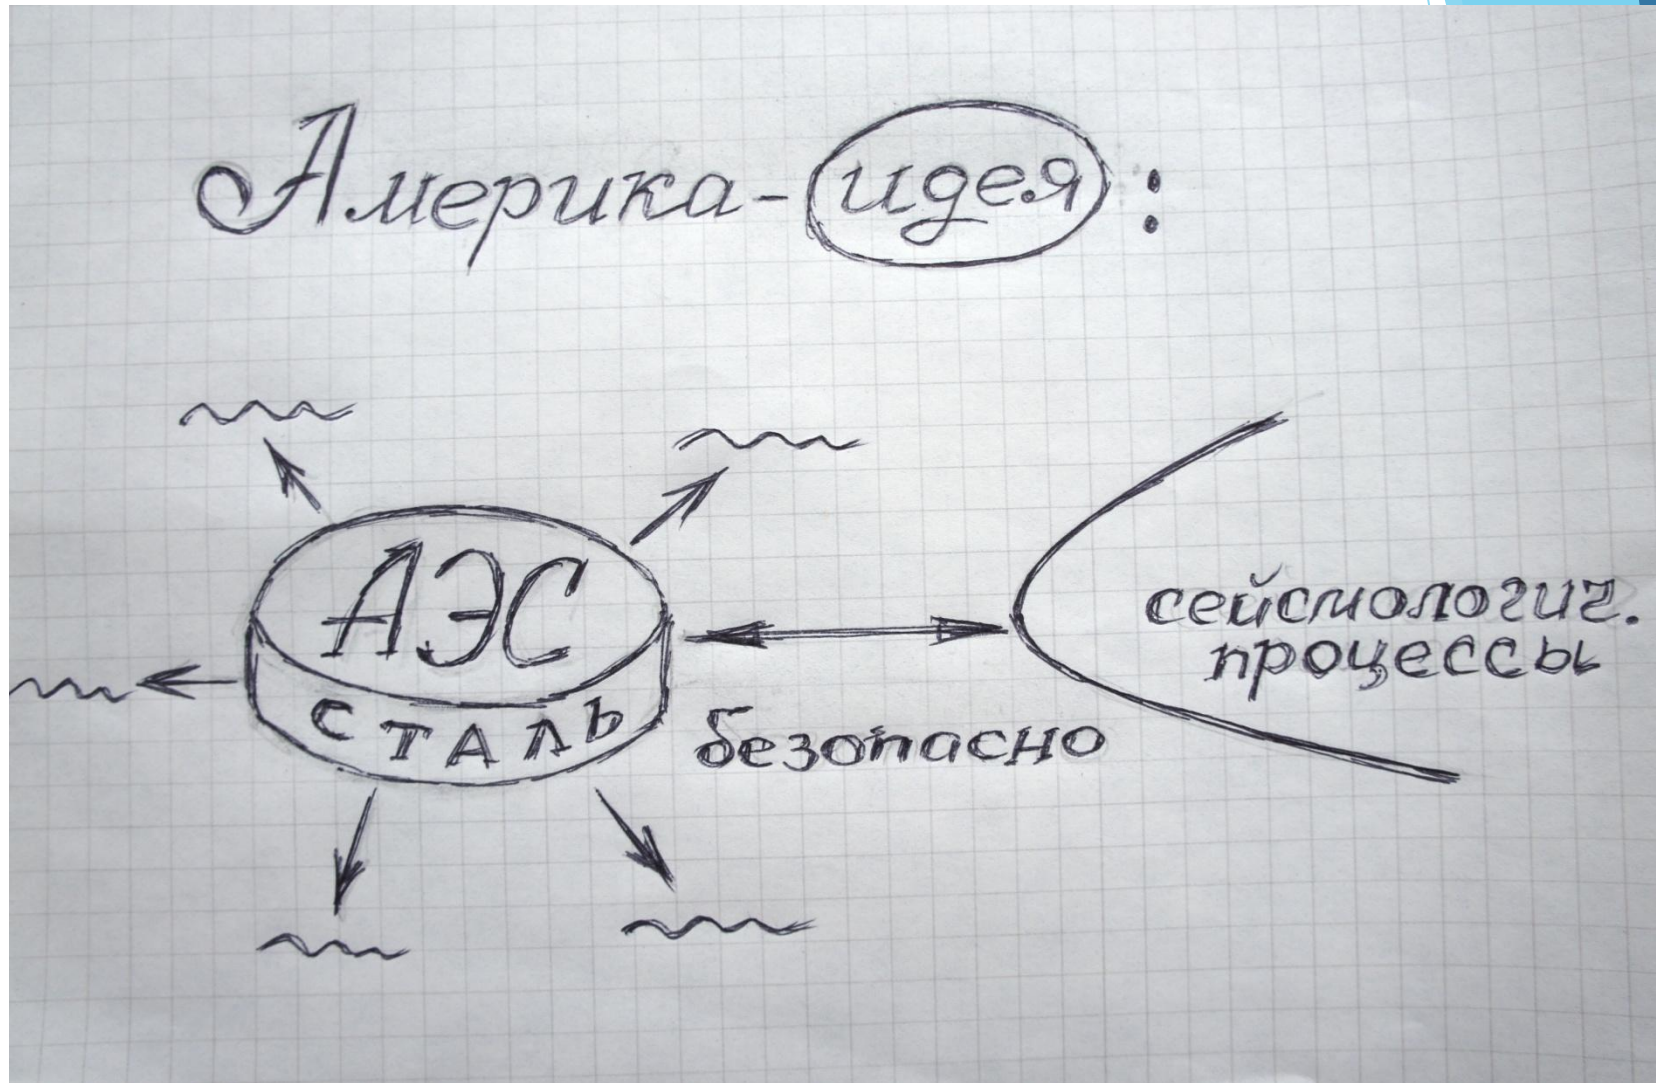 Америка - идея :
АЭС
СТАЛЬ
безопасно
сейсмологич.
процессы